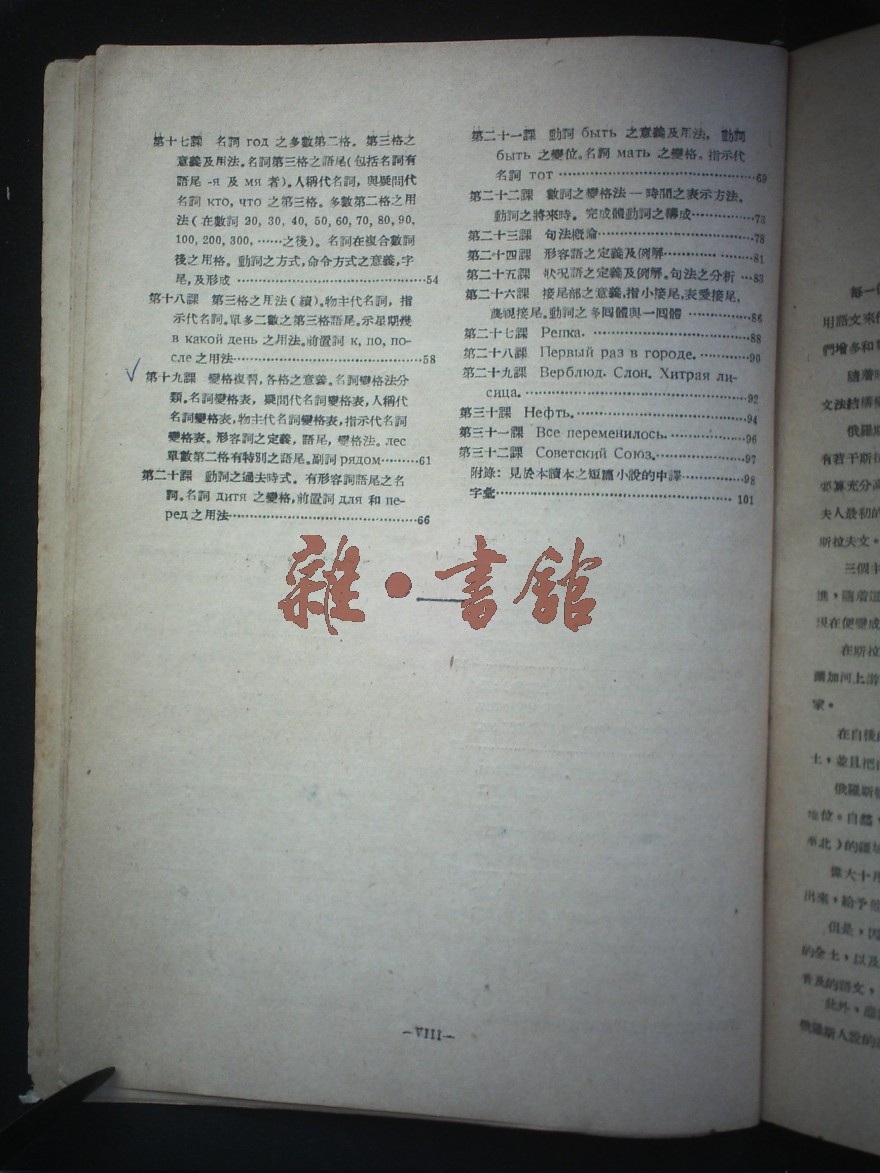 第十七課 名詞 год 之多數第二格。第三格之
意義及用法。名詞第三格之語尾(包括名詞有
語尾 -я 及 мя 者)。人稱代名詞,與疑問代
名詞 кто, что 之第三格。多數第二格之用
法(在數詞 20, 30, 40, 50, 60, 70, 80, 90,
100, 200, 300, ……之後)。名詞在複合數詞
後之用格。動詞之方式,命令方式之意義,字
尾,及形成 ……54
第十八課 第三格之用法(續)。物主代名詞,指
示代名詞,單多二數之第三格語尾。示星期幾
в какой день 之用法。前置詞 к, по, по-
сле 之用法……58
第十九課 變格複習,各格之意義。名詞變格法分
類。名詞變格表,疑問代名詞變格表,人稱代
名詞變格表,物主代名詞變格表,指示代名詞
變格表。形容詞之定義,語尾,變格法。лес
單數第二格有特別之語尾。副詞 рядом……61
第二十課 動詞之過去時式。有形容詞語尾之名
詞。名詞 дитя 之變格,前置詞 для 和 пе-
ред 之用法……66
第二十一課 動詞 быть 之意義及用法。動詞
быть 之變位。名詞 мать 之變格。指示代
名詞 тот ……69
第二十二課 數詞之變格法—時間之表示方法。
動詞之將來時。完成體動詞之構成……73
第二十三課 句法概論……78
第二十四課 形容語之定義及例解……81
第二十五課 狀況語之定義及例解。句法之分析 …83
第二十六課 接尾部之意義,指小接尾,表愛接尾,
蔑視接尾。動詞之多回體與一回體 ……86
第二十七課 Репка. ……88
第二十八課 Первый раз в городе. ……90
第二十九課 Верблюд. Слон. Хитрая ли-
сица. ……92
第三十課 Нефть. ……94
第三十一課 Все переменилось. ……96
第三十二課 Советский Союз. ……97
附錄: 見於本讀本之短篇小說的中譯……98
字彙…… 101
雜·書館
—VIII—
每一
用語文來
們增多和
隨着
文法結構
俄羅斯
有若干斯
要算充分
夫人最初的
斯拉夫文。
三個主
進,隨着
現在便變成
在斯拉
爾加河上游
家。
在自後
土,並且把
俄羅斯
地位。自然,
北)的疆
偉大十月
出來,給予
但是,因
的全土,以及
普及的語文,
此外,
俄羅斯人說的